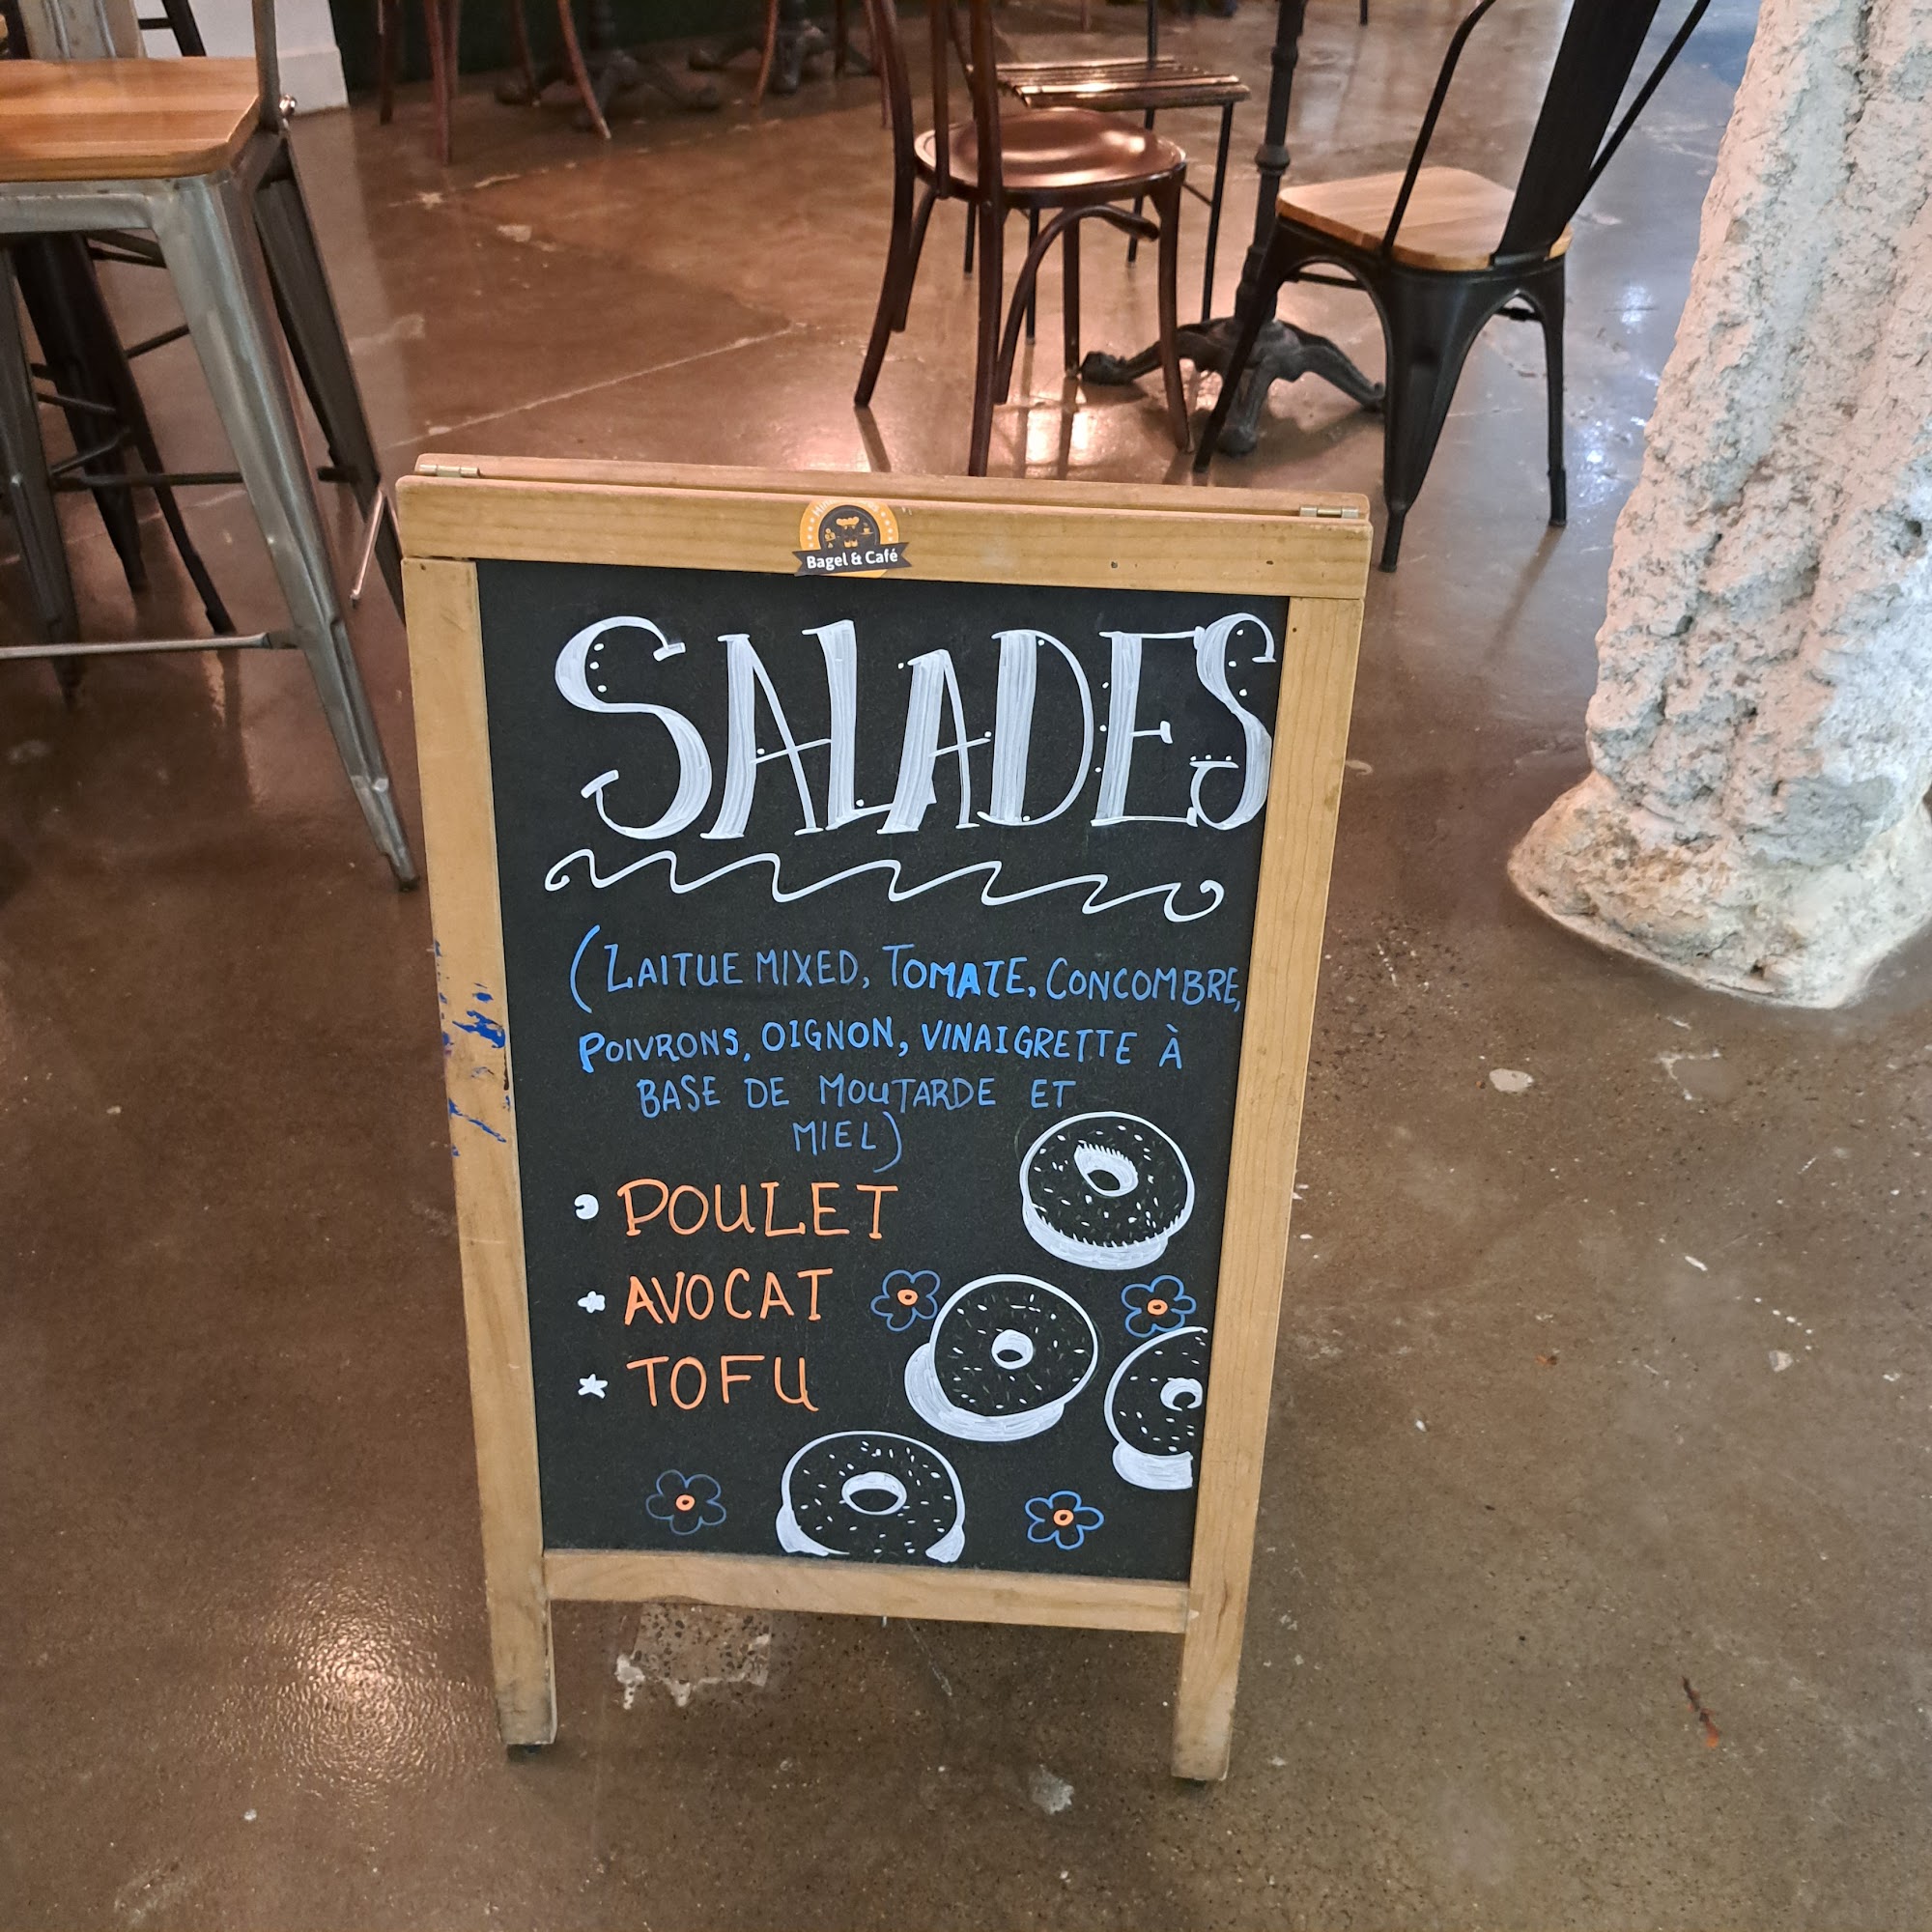 Bagel & Café
SALADES
(LAITUE MIXED, TOMATE, CONCOMBRE,
POIVRONS, OIGNON, VINAIGRETTE À
BASE DE MOUTARDE ET
MIEL)
POULET
AVOCAT
TOFU